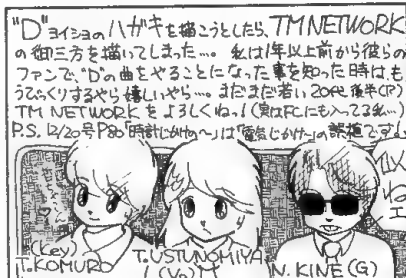 "D"ヨイショのハガキを描こうとしたら、TM NETWORK
の御三方を描いてしまった…。私は1年以上前から彼らの
ファンで、"D"の曲をやることになった事を知った時は、も
うびっくりするやら嬉しいやら…。まだまだ若い20代後半(?)
TM NETWORKをよろしくねっ!(実はFCにも入ってる私…)
P.S. 12/20号P80「時計じかけの〜」は「電気じかけ〜」の誤植ですよ
似
ねェ
(Key)
T.KOMURO
T.USTUNOMIYA
(Vo)
N.KINE (G)